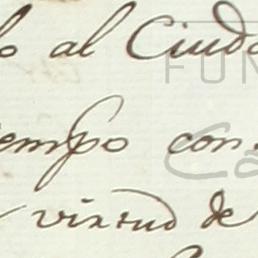 o al Ciuda
FUN
iempo con
Ca
virtud de